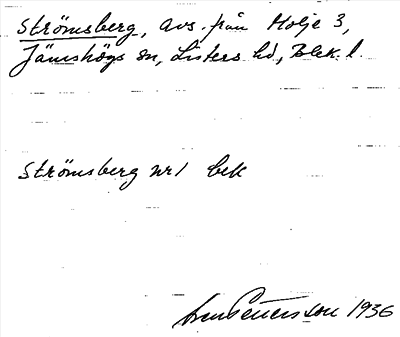 Strömsberg, avs. från Holje 3,
Jämshögs sn, Listers hd, Blek. l.
Strömsberg nr 1 bek
1936